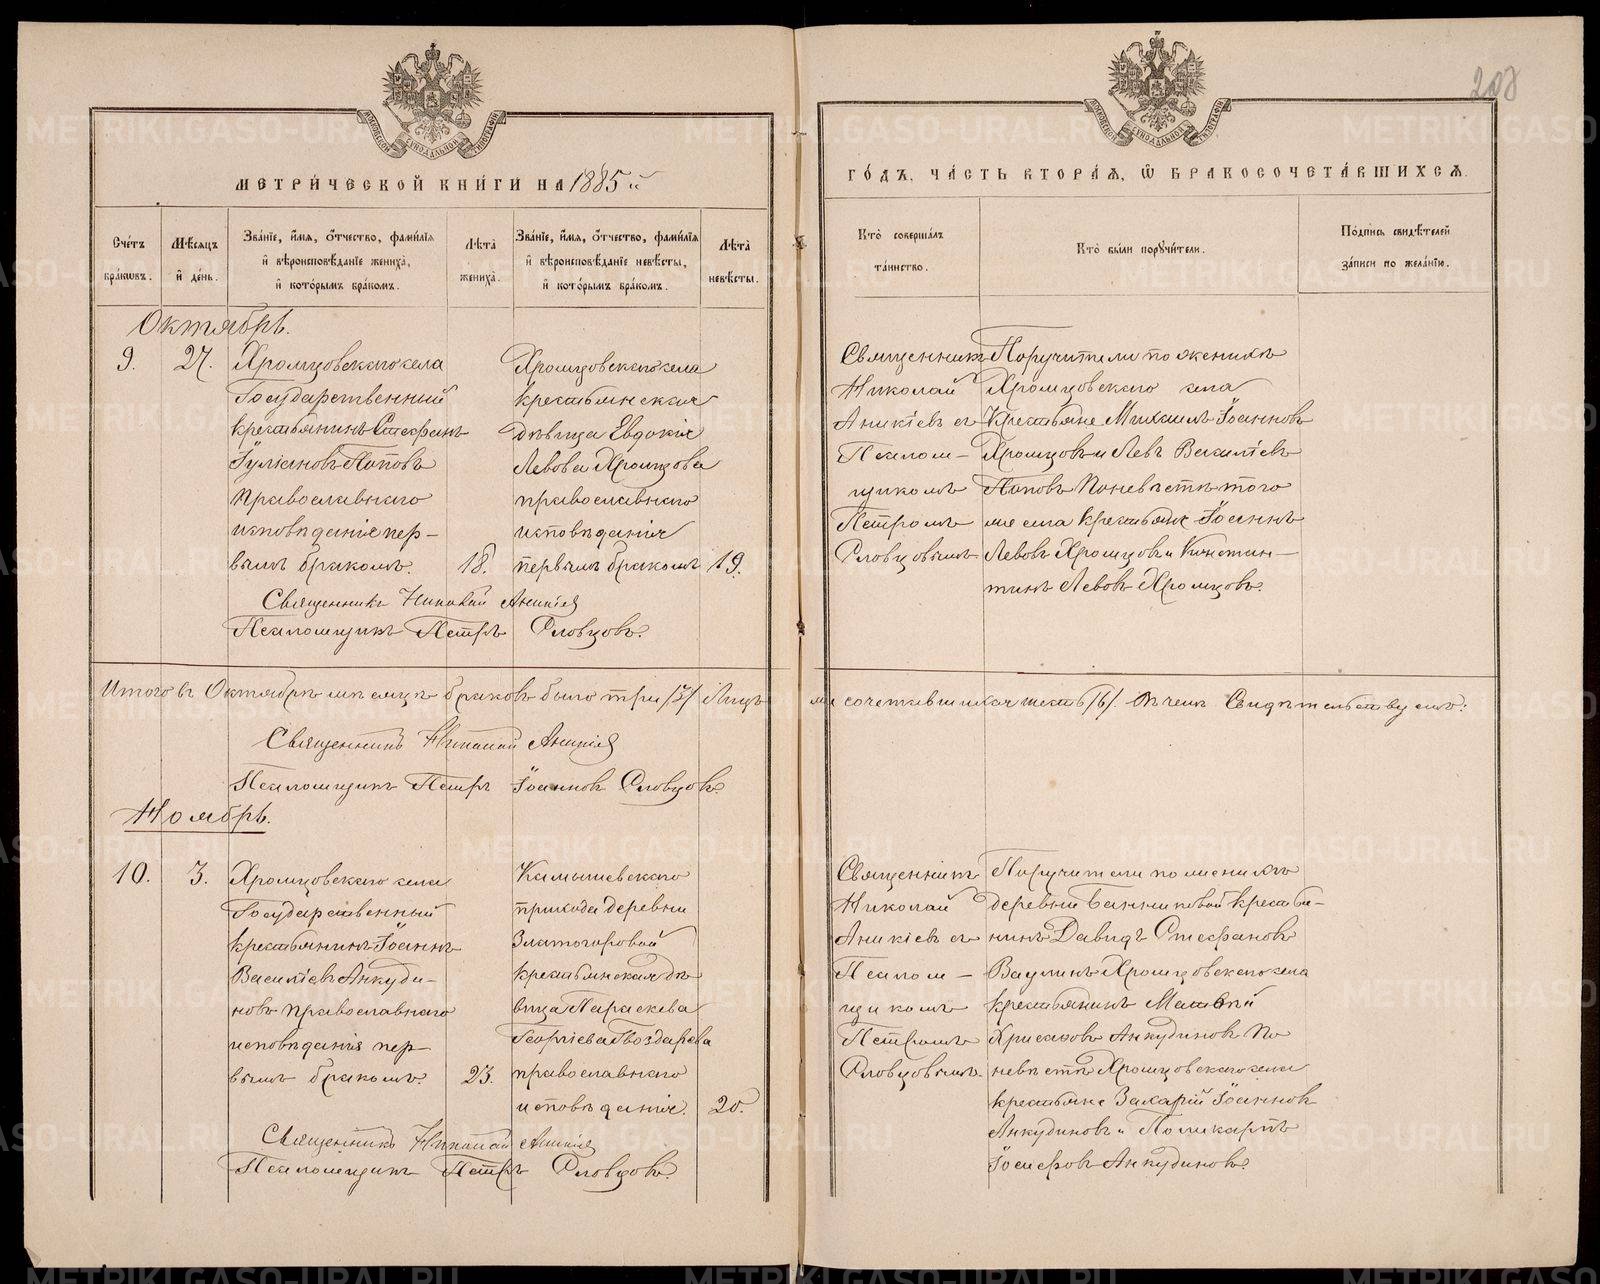 208
МЕТРИ́ЧЕСКОЙ КНИ́ГИ НА 1885й
ГО́ДЪ, ЧА́СТЬ ВТОРА́Я, Ѽ БРАКОСОЧЕТА́ВШИХСѦ.
Сче́тъ бра́кѡвъ.
Мѣ́сѧцъ и҆ де́нь.
Зва́нїе, и҆́мѧ, ѻ҆́тчество, фами́лїѧ и҆ вѣроисповѣ́данїе жениха̀, и҆ кото́рымъ бра́комъ.
Лѣ́та жениха̀.
Зва́нїе, и҆́мѧ, ѻ҆́тчество, фами́лїѧ и҆ вѣроисповѣ́данїе невѣ́сты, и҆ кото́рымъ бра́комъ.
Лѣ́та невѣ́сты.
Кто̀ соверша́лъ та́инство.
Кто̀ бы́ли поручи́тели.
По́дпись свидѣ́телей за́писи по жела́нїю.
Октябрь.
9.
27.
Хромцовскаго села
Государственный
крестьянинъ Стефанъ
Іуліановъ Поповъ
православнаго
исповѣданія пер-
вымъ бракомъ.
18.
Хромцовскаго села
крестьянская
дѣвица Евдокія
Левова Хромцова
православнаго
исповѣданія
первымъ бракомъ
19.
Священникъ Николай Аникіев
Псаломщикъ Петръ Словцовъ.
Священникъ
Николай
Аникіевъ съ
Псалом-
щикомъ
Петромъ
Словцовымъ
Поручители по женихѣ
Хромцовскаго села
Крестьяне Михаилъ Іоанновъ
Хромцовъ и Левъ Василіевъ
Поповъ По невѣстѣ того
же села крестьяне Іоаннъ
Левовъ Хромцовъ и Констан-
тинъ Левовъ Хромцовъ.
Итого въ Октябрѣ мѣсяцѣ браковъ было три /3/ Лицъ
сочетавшихся шесть /6/. Въ чемъ Свидѣтельствуемъ:
Священникъ Николай Аникіев
Псаломщикъ Петръ Іоанновъ Словцовъ.
Ноябрь.
10.
3.
Хромцовскаго села
Государственный
крестьянинъ Іоаннъ
Василіевъ Анкуди-
новъ православнаго
исповѣданія пер-
вымъ бракомъ.
23.
Камышевскаго
прихода деревни
Златогоровой
крестьянская дѣ-
вица Параскева
Георгіева Гвоздарева
православнаго
исповѣданія.
20.
Священникъ Николай Аникіев
Псаломщикъ Петръ Словцовъ.
Священникъ
Николай
Аникіевъ съ
Псалом-
щикомъ
Петромъ
Словцовымъ
Поручители по женихѣ
деревни Банниковой крестья-
нинъ Давидъ Стефановъ
Ваулинъ Хромцовскаго села
крестьянинъ Матвѣй
Хрисановъ Анкудиновъ По
невѣстѣ Хромцовскаго села
крестьяне Захарій Іоанновъ
Анкудиновъ и Поликарпъ
Іосифовъ Анкудиновъ.
METRIKI.GASO-URAL.RU